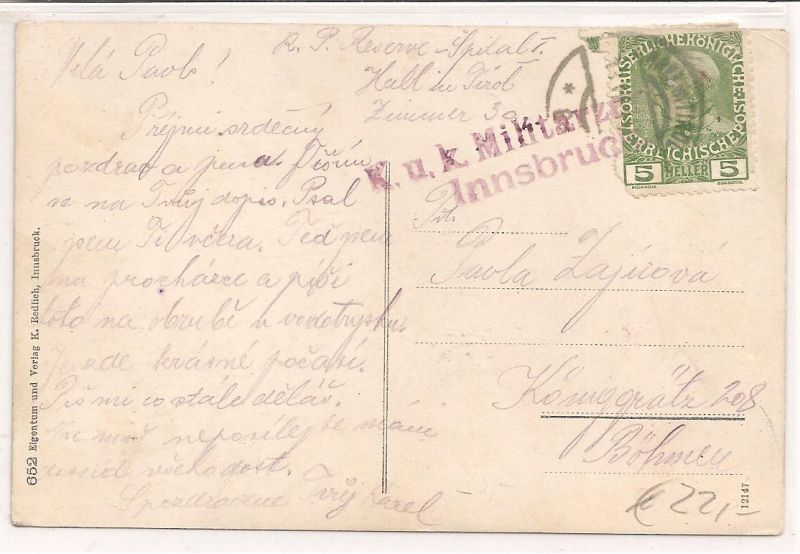 Milá Pavlo!
K. P. Reserve-Spital I.
Hall in Tirol
Zimmer 30
Přijmi srdečný
pozdrav a pusu. Těším
se na Tvůj dopis. Psal
jsem Ti včera. Teď jsem
na procházce a píši
toto na obrubě u vodotrysku.
Je zde krásné počasí.
Piš mi co stále děláš.
Nic mně neposílej že mám
všeho dost.
S pozdravem Tvůj Karel
K. u. k. Militärz
Innsbruc
KAISERLICHEKÖNIGLICHE
ÖSTERREICHISCHE POST
5 HELLER 5
Pavla Zajícová
Königgrätz 208
Böhmen
€ 22,-
652 Eigentum und Verlag K. Redlich, Innsbruck.
12147